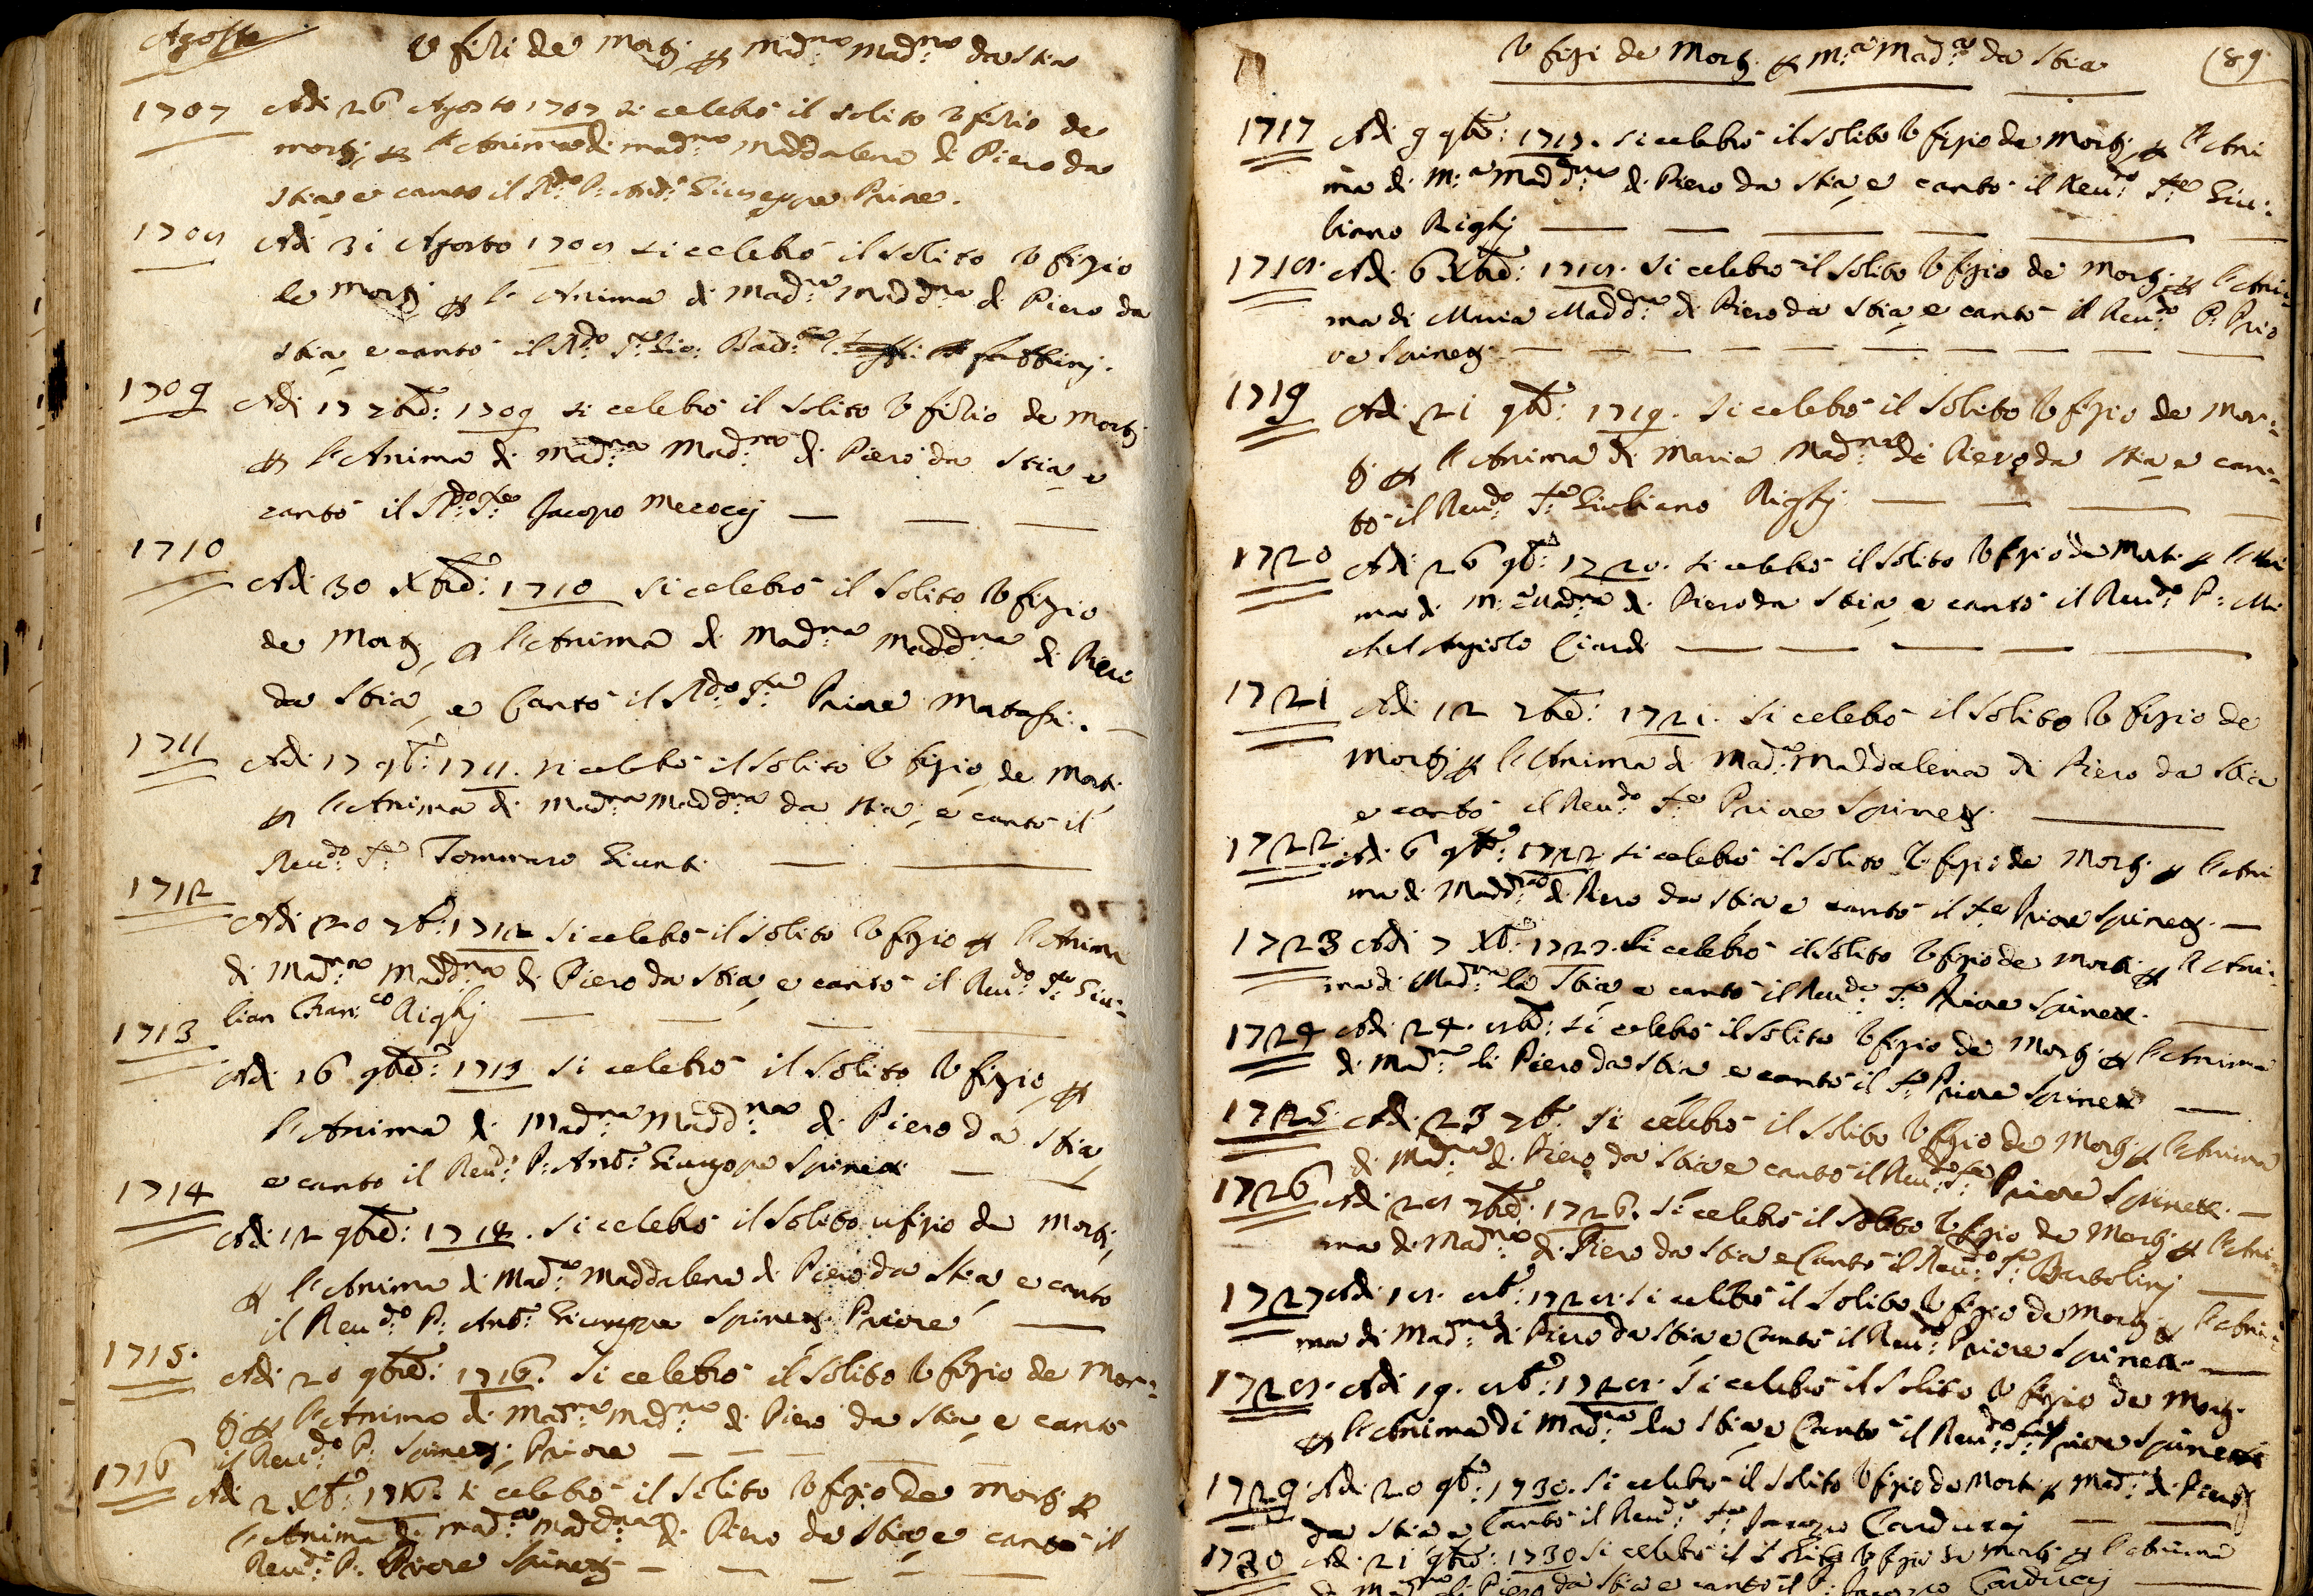 Agosto
Ufizi de Morti p Mad:na Mad:na da Stia
1707 Adi 26 Agosto 1707 si celebrò il solito Ufizio de
morti p l'Anima di mad:na Maddalena di Piero da
Stia e cantò il R:do P: Ant:o Giuseppe Priore.
1708 Adi 31 Agosto 1708 si celebrò il solito Ufizio
de Morti p l'Anima di Mad:na Madd:na di Piero da
Stia, e cantò il R:do F:re Gio: Bat:ta
1709 Adi 17 7bre: 1709 si celebrò il solito Ufizio de Morti
p l'Anima di Mad:na Mad:na di Piero da Stia e
cantò il R:do F:re Jacopo Mecocci
1710
Adi 30 Xbre: 1710 si celebrò il solito Ufizio
de Morti, p l'Anima di Mad:na Madd:na di Piero
da Stia, e Cantò il R:do F:re Priore Matassi.
1711 Adi 17 9b:e 1711. si celebrò il solito Ufizio de Morti
p l'Anima di Mad:na Madd:na da Stia, e cantò il
Reu:do F:re Tommaso Giunti
1712
Adi 20 7b:e 1712 si celebrò il solito Ufizio p l'Anima
di Mad:na Madd:na di Piero da Stia, e cantò il Reu:do F:re Giu=
lian Fran:co Righi
1713
Adi 16 9bre: 1713 si celebrò il solito Ufizio, p
l'Anima di Mad:na Madd:na di Piero da Stia,
e cantò il Reu:do P: Ant:o Giuseppe Spineti
1714
Adi 12 9bre: 1714. si celebrò il solito ufizio de Morti,
p l'Anima di Mad:a Maddalena di Piero da Stia e cantò
il Reu:do P: Ant:o Giuseppe Spineti Priore
1715.
Adi 20 9bre: 1716. si celebrò il solito Ufizio de Mor=
ti p l'Anima di Mad:na Mad:na di Piero da Stia, e cantò
il Reu:do P: Spineti, Priore
1716 Adi 2 Xb:e 1716. si celebrò il solito Ufizio de Morti p
l'Anima di Mad:a Madd:na di Piero da Stia, e cantò il
Reu:do P: Priore Spineti
Ufizi de Morti p M:a Mad:a da Stia
189
1717 Adi 9 9bre: 1717. si celebrò il solito Ufizio de Morti, p l'Ani
ma di M:a Madd:na di Piero da Stia, e cantò il Reu:do F:re Giu=
liano Righi
1718. Adi 6 Xbre: 1718. si celebrò il solito Ufizio de Morti, p l'Ani=
ma di Maria Madd:na di Piero da Stia, e cantò il Reu:do P: Prio
re Spineti
1719 Adi 21 9bre: 1719. si celebrò il solito Ufizio de Mor=
ti p l'Anima di Maria Mad:na di Piero da Stia e can=
tò il Reu:do F:re Giuliano Righi
1720 Adi 26 9b:e 1720. si celebrò il solito Ufizio de Morti p l'Ani
ma di M:a Mad:na di Piero da Stia, e cantò il Reu:do P: Mi
chel Agiolo Ciardi
1721 Adi 12 7bre: 1721. si celebrò il solito Ufizio de
Morti p l'Anima di Mad:a Maddalena di Piero da Stia
e cantò il Reu:do F:re Priore Spineti
1722 Adi 6 9b:e 1722 si celebrò il solito Ufizio de Morti p l'Ani
ma di Madd:na di Piero da Stia e cantò il F:re Priore Spineti.
1723 Adi 7 Xb:e 1727. Si celebrò il solito Ufizio de Morti p l'Ani=
ma di Mad:na la Stia e cantò il Reu:do F:re Priore Spineti.
1724 Adi 24. 8bre: si celebrò il solito Ufizio de Morti p l'Anima
di Mad:na di Piero da Stia e cantò il F:re Priore Spineti
1725. Adi 23 7b:e si celebrò il solito Ufizio de Morti p l'Anima
di Mad:na di Piero da Stia e cantò il Reu:do F:re Priore Spineti.
1726 Adi 28 7bre: 1726. si celebrò il solito Ufizio de Morti p l'Ani=
ma di Mad:na di Piero da Stia e Cantò il Reu:do F:re Bartolini
1727 Adi 18. 8b:e 1728. si celebrò il solito Ufizio de Morti p l'Ani=
ma di Mad:na di Piero da Stia e Cantò il Reu:do Priore Spineti.
1728. Adi 19. 8b:e 1728. si celebrò il solito Ufizio de Morti
p l'Anima di Mad:na da Stia, e Cantò il Reu:do F:re Priore Spineti
1729. Adi 20 9b:e 1730. si celebrò il solito Ufizio de Morti p Mad:a di Piero
da Stia e Cantò il Reu:do F:re Jacopo Carducci
1730 Adi 21 9bre: 1730 si celebrò il solito Ufizio de Morti p l'Anima
di Mad:na di Piero da Stia e cantò il P: Jacopo Carducci